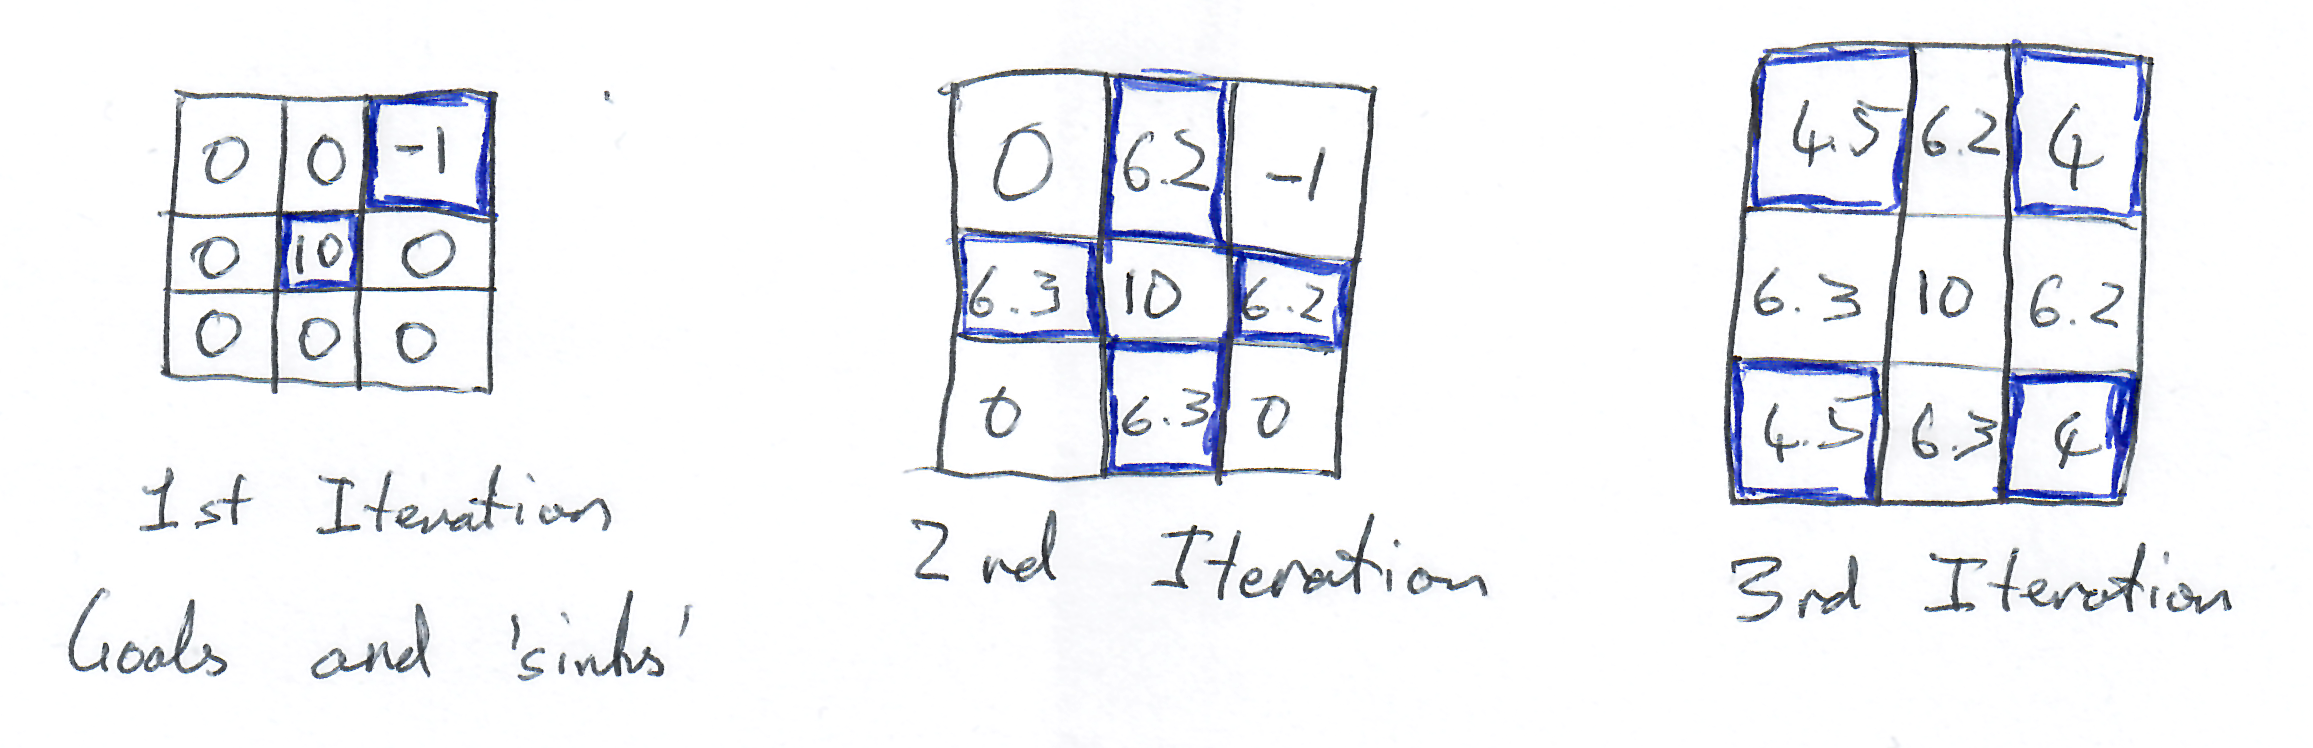 0 0 -1
0 10 0
0 0 0
1st Iteration
Goals and 'sinks'
0 6.2 -1
6.3 10 6.2
0 6.3 0
2nd Iteration
4.5 6.2 4
6.3 10 6.2
4.5 6.3 4
3rd Iteration